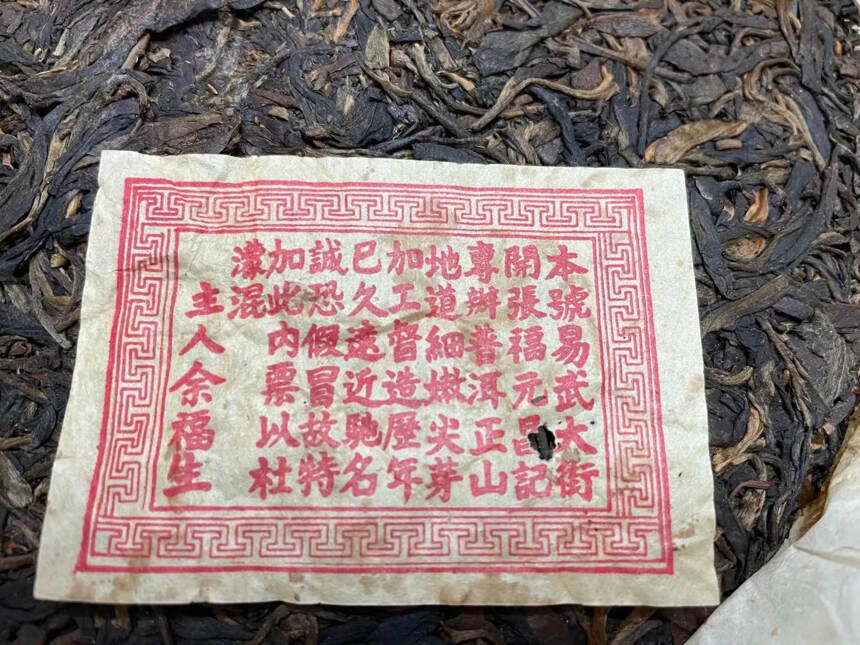 本號易武大街
開張福元昌記
專辦普洱正山
地道細嫩尖芽
加工督造歷年
已久遠近馳名
誠恐假冒故特
加此內票以杜
濛混
主人余福生